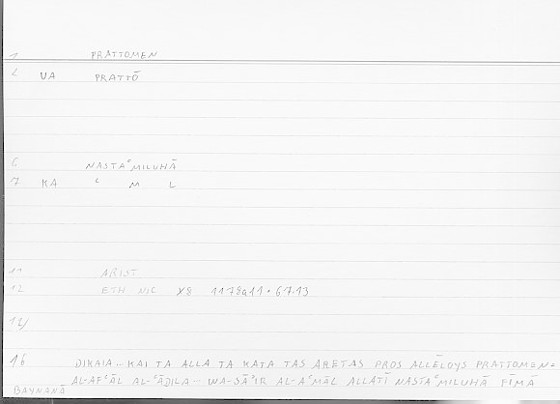 1 PRATTOMEN
2 VA PRATTŌ
6 NASTAʿMILUHĀ
7 KA ʿ M L
11 ARIST
12 ETH NIC X8 1178a11 • 67.13
14)
16 DIKAIA – KAI TA ALLA TA KATA TAS ARETAS PROS ALLĒLOYS PRATTOMEN =
AL-AFʿĀL AL-ʿĀDILA – WA-SĀʾIR AL-AʿMĀL ALLATĪ NASTAʿMILUHĀ FĪMĀ
BAYNANĀ